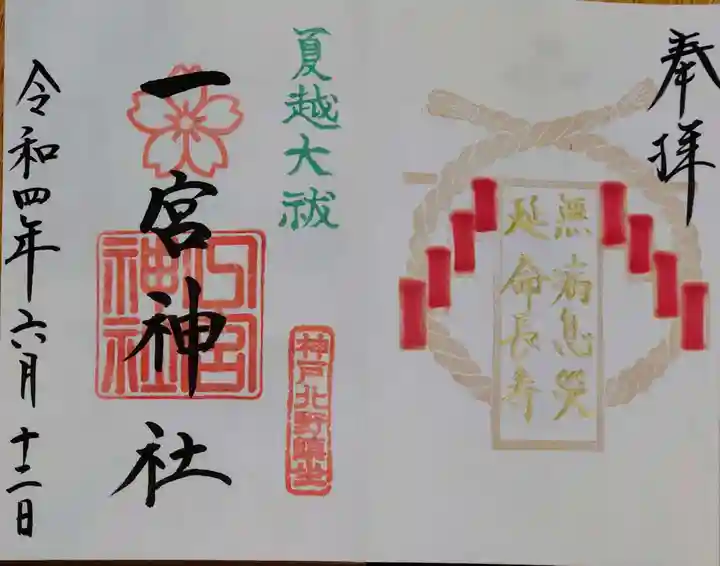 奉拝
無病息災
延命長寿
夏越大祓
神戸北野鎮座
一宮神社
一宮神社
令和四年六月十二日